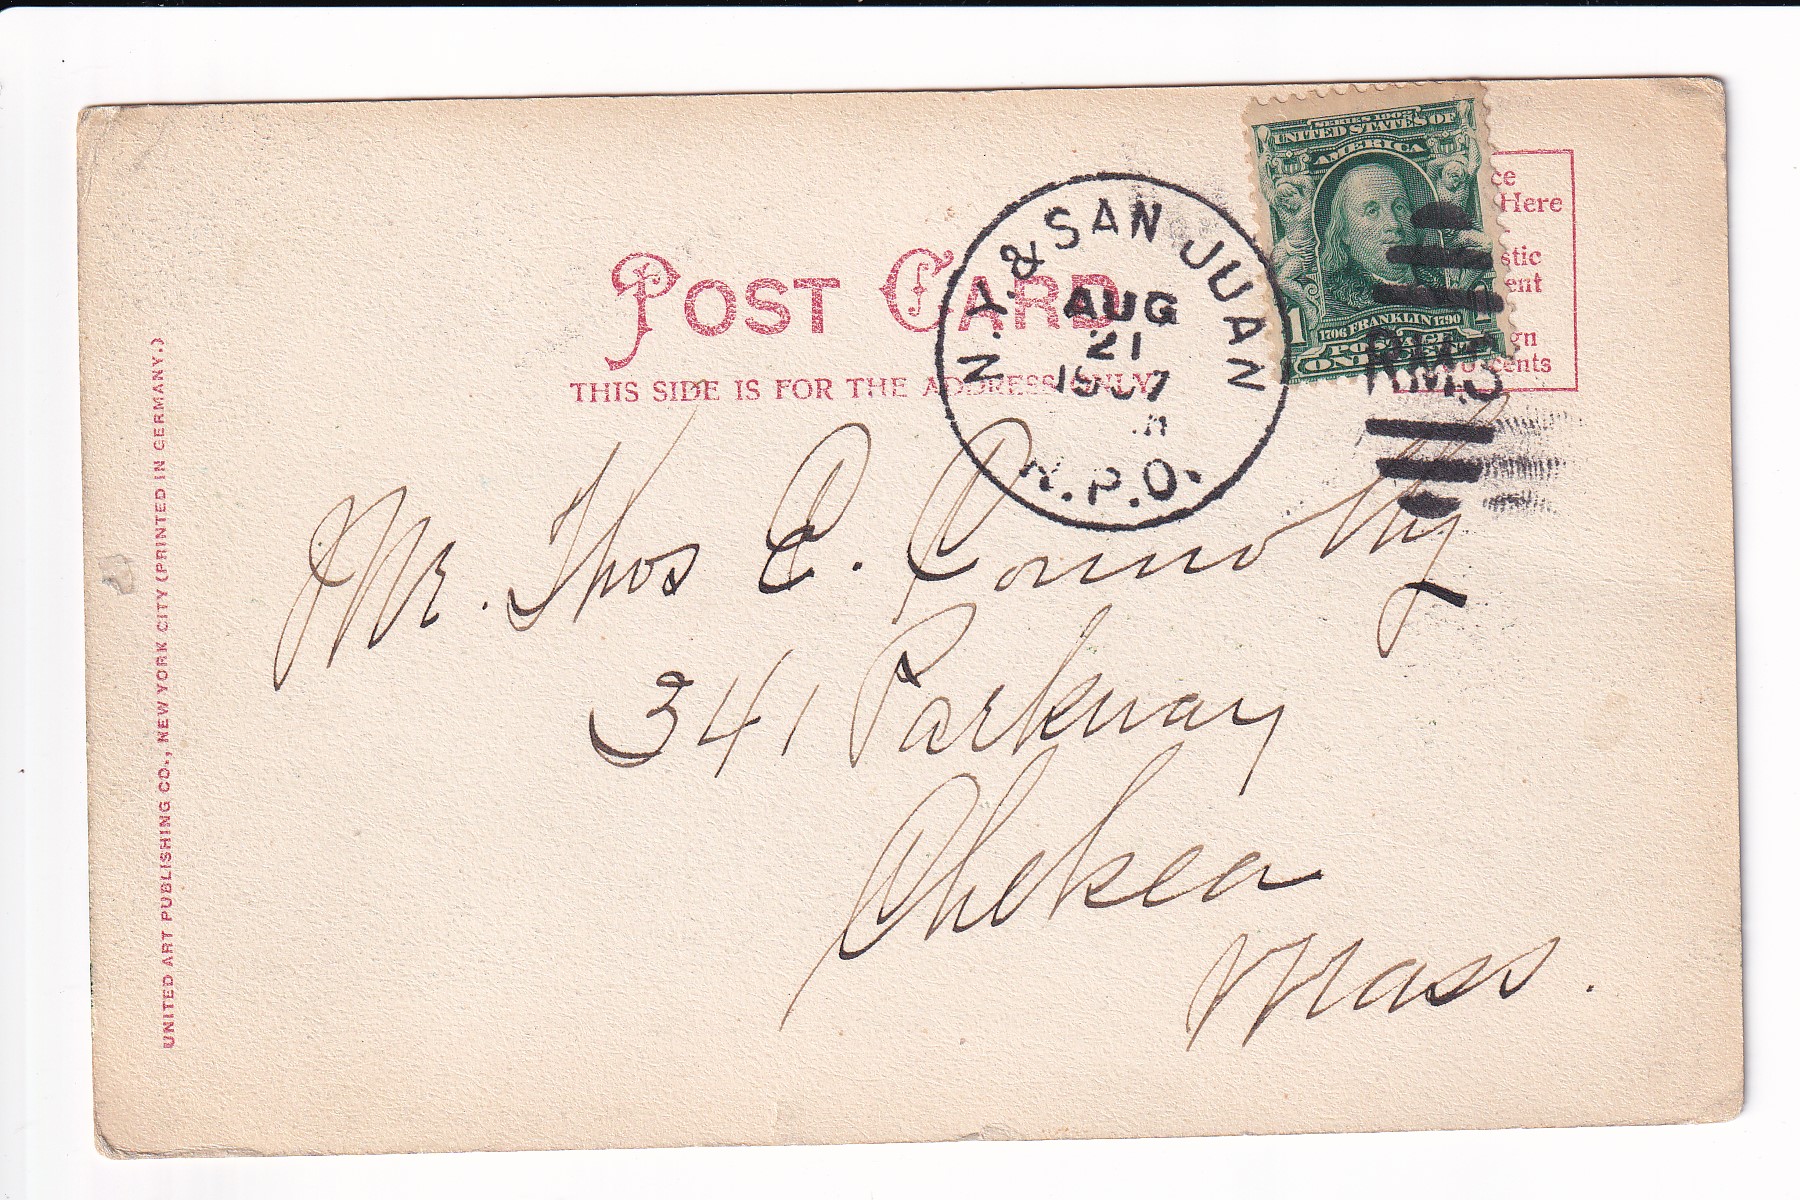 SERIES 1902
UNITED STATES OF
AMERICA
1706 FRANKLIN 1790
POSTAGE
1
ONE CENT
ce
Here
stic
ent
gn
cents
POST CARD
THIS SIDE IS FOR THE ADDRESS ONLY
N.Y. & SAN JUAN
AUG
21
1907
R.P.O.
R.M.S
Mr. Thos C. Connolly
341 Parkway
Chelsea
Mass.
UNITED ART PUBLISHING CO., NEW YORK CITY (PRINTED IN GERMANY.)